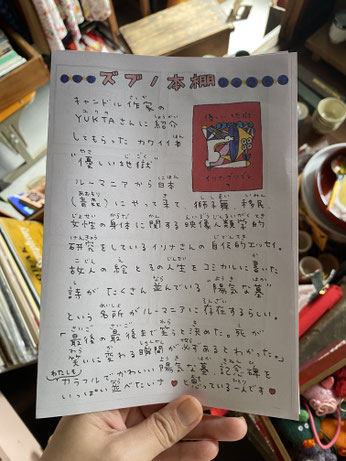 ズブノ本棚
キャンドル作家の
YUKTAさんに紹介
してもらった カワイイ本
"優しい地獄"
ルーマニアから日本
(青森)にやって来て、獅子舞、移民、
女性の身体に関する映像人類学的
研究をしているイリナさんの自伝的エッセイ。
故人の絵とその人生をコミカルに書いた
詩がたくさん並んでいる"陽気な墓"
という名所がルーマニアに存在するらしい。
「最後の最後まで笑うと決めた。死が
笑いに変わる瞬間が必ずあるとわかった。」
わたしも
カラフルでかわいい陽気な墓、記念碑を
いっぱい並べたいナ♥と思っているんです♥
優しい地獄
イリナ・グリゴレ